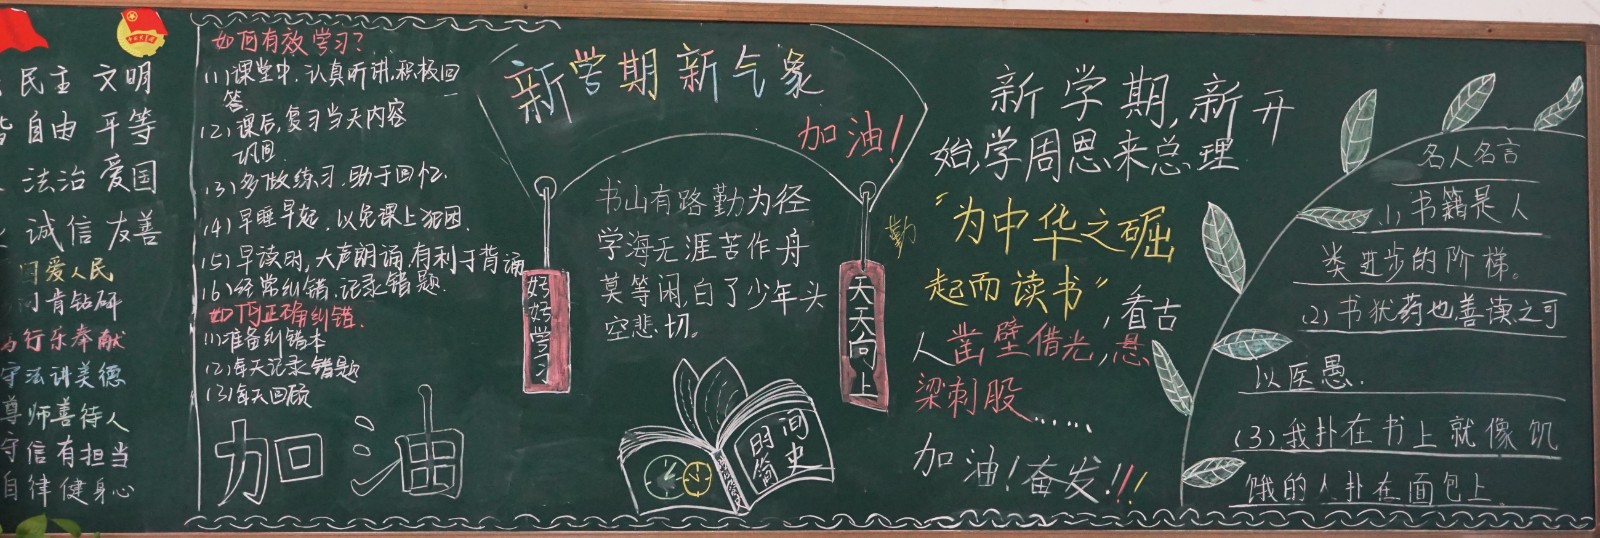 民主 文明
自由 平等
法治 爱国
诚信 友善
爱人民
肯钻研
行乐奉献
守法讲美德
尊师善待人
守信有担当
自律健身心
如何有效学习?
(1)课堂中,认真听讲,积极回
答
(2)课后,复习当天内容
巩固
(3)多做练习,助于回忆.
(4)早睡早起,以免课上犯困.
(5)早读时,大声朗诵,有利于背诵
(6)经常纠错,记录错题.
如何正确纠错.
(1)准备纠错本
(2)每天记录错题
(3)每天回顾
加油
新学期新气象
加油!
好好学习
书山有路勤为径
学海无涯苦作舟
莫等闲,白了少年头
空悲切.
天天向上
勤
时间简史
新学期,新开
始,学周恩来总理
“为中华之崛
起而读书”,看古
人凿壁借光,悬
梁刺股……
加油!奋发!!!
名人名言
(1)书籍是人
类进步的阶梯。
(2)书犹药也,善读之可
以医愚.
(3)我扑在书上就像饥
饿的人扑在面包上